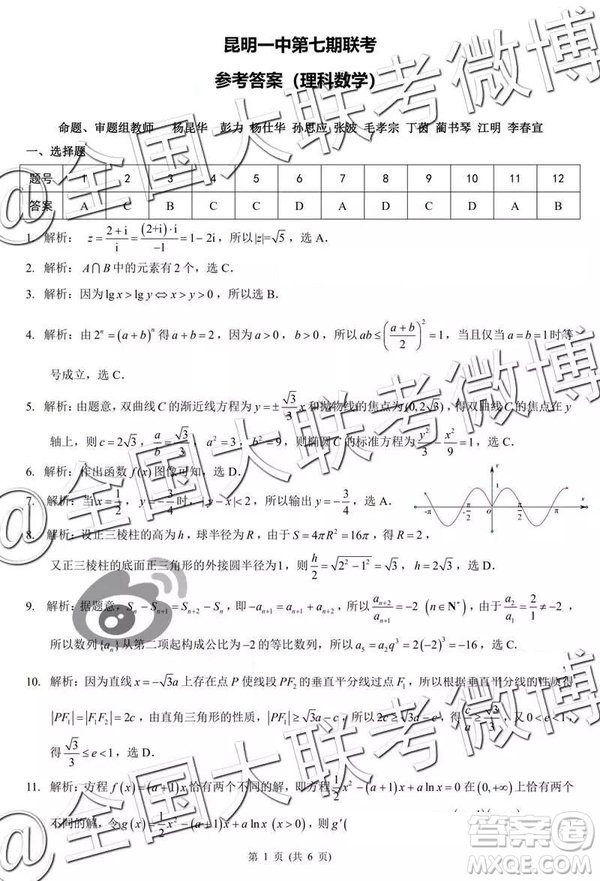 昆明一中第七期联考
参考答案（理科数学）
命题、审题组教师 杨昆华 彭力 杨仕华 孙思应 张波 毛孝宗 丁茵 蔺书琴 江明 李春宣
一、选择题
题号 1 2 3 4 5 6 7 8 9 10 11 12
答案 A C B C
1. 解析：z=(2+i)/i=((2+i)·i)/(-1)=1-2i，所以|z|=√5，选 A．
2. 解析：A∩B 中的元素有 2 个，选 C．
3. 解析：因为 lg x > lg y ⇔ x > y > 0，所以选 B．
4. 解析：由 2ⁿ=(a+b)ⁿ 得 a+b=2，因为 a>0，b>0，所以 ab≤((a+b)/2)²=1，当且仅当 a=b=1 时等
号成立，选 C．
5. 解析：由题意，双曲线 C 的渐近线方程为 y=±(√3/3)x 和抛物线的焦点为(0,2√3)，得双曲线 C 的焦点在 y
轴上，则 c=2√3，a/b=√3/3，a²=3，b²=9，则 C 的标准方程为 y²/3-x²/9=1．
6. 解析：作出函数 f(x) 图像可知，选 D．
-π -π/2 O π/2 π x
7. 解析：当 x=1/2，y=-3/4 时，|y-x|<2，所以输出 y=-3/4，选
8. 解析：设正三棱柱的高为 h，球半径为 R，由于 S=4πR²=16π，得 R=2，
又正三棱柱的底面正三角形的外接圆半径为 1，则有 h/2=√(2²-1²)=√3，h=2√3，选 D．
9. 解析：据题意，Sₙ-Sₙ₊₁=Sₙ₊₂-Sₙ，即 -aₙ₊₁=aₙ₊₂+aₙ₊₁，所以 aₙ₊₂/aₙ₊₁=-2 (n∈N*)，由于 a₂/a₁=2/1≠-2，
所以数列{aₙ}从第二项起构成公比为 -2 的等比数列，所以 a₅=a₂q³=2(-2)³=-16，选 A．
10. 解析：因为直线 x=-√3a 上存在点 P 使线段 PF₂ 的垂直平分线过点 F₁，根据垂直平分线的性质有
|PF₁|=|F₁F₂|=2c，由直角三角形的性质，|PF₁|≥c-√3a，所以 2c≥√3a-c，得 c/a≥√3/3，又 0<e<1，
得 √3/3≤e<1，选 D．
11. 解析：方程 f(x)=(a+1)x 恰有两个不同的解，即方程 1/2x²-(a+1)x+a ln x=0 在 (0,+∞) 上恰有两个
不同的解，令 g(x)=1/2x²-(a+1)x+a ln x (x>0)，则 g′(
第 1 页 (共 6 页)
@全国大联考微博
答案圈